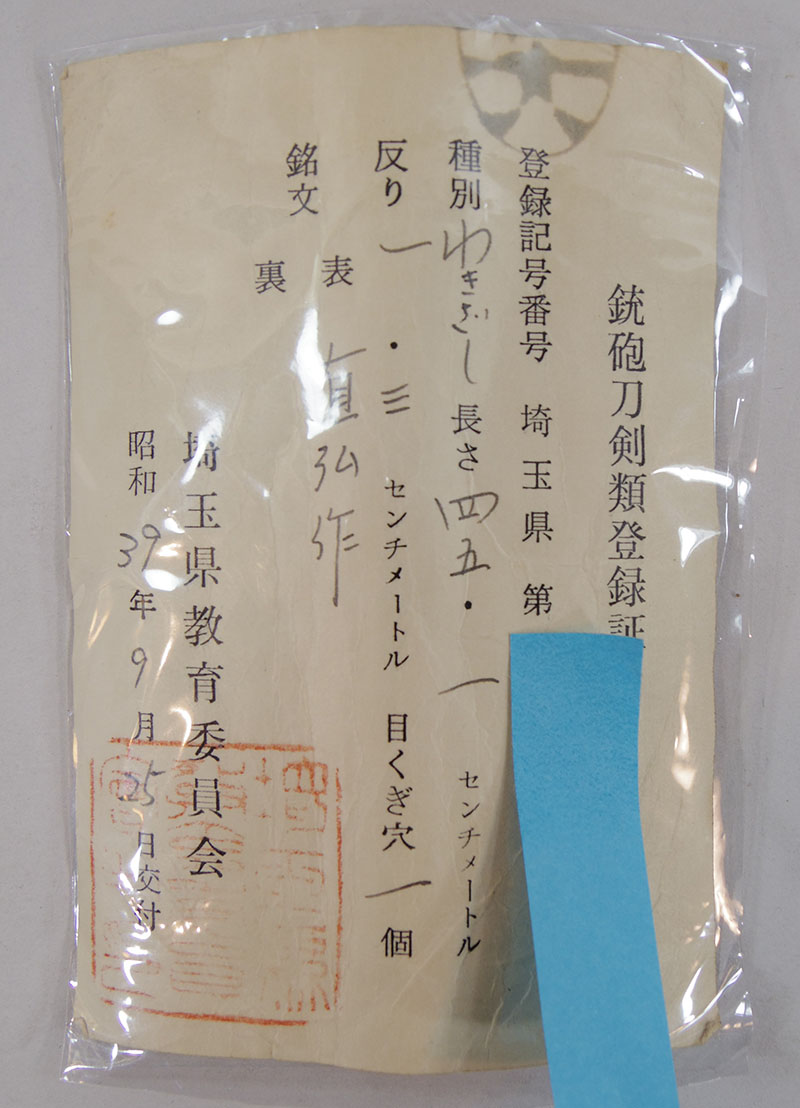 銃砲刀剣類登録証
登録記号番号 埼玉県 第
種別 わきざし 長さ 四五・一 センチメートル
反り 一・三 センチメートル 目くぎ穴 一 個
銘文 表 直弘作
裏
埼玉県教育委員会
昭和39年9月25日交付